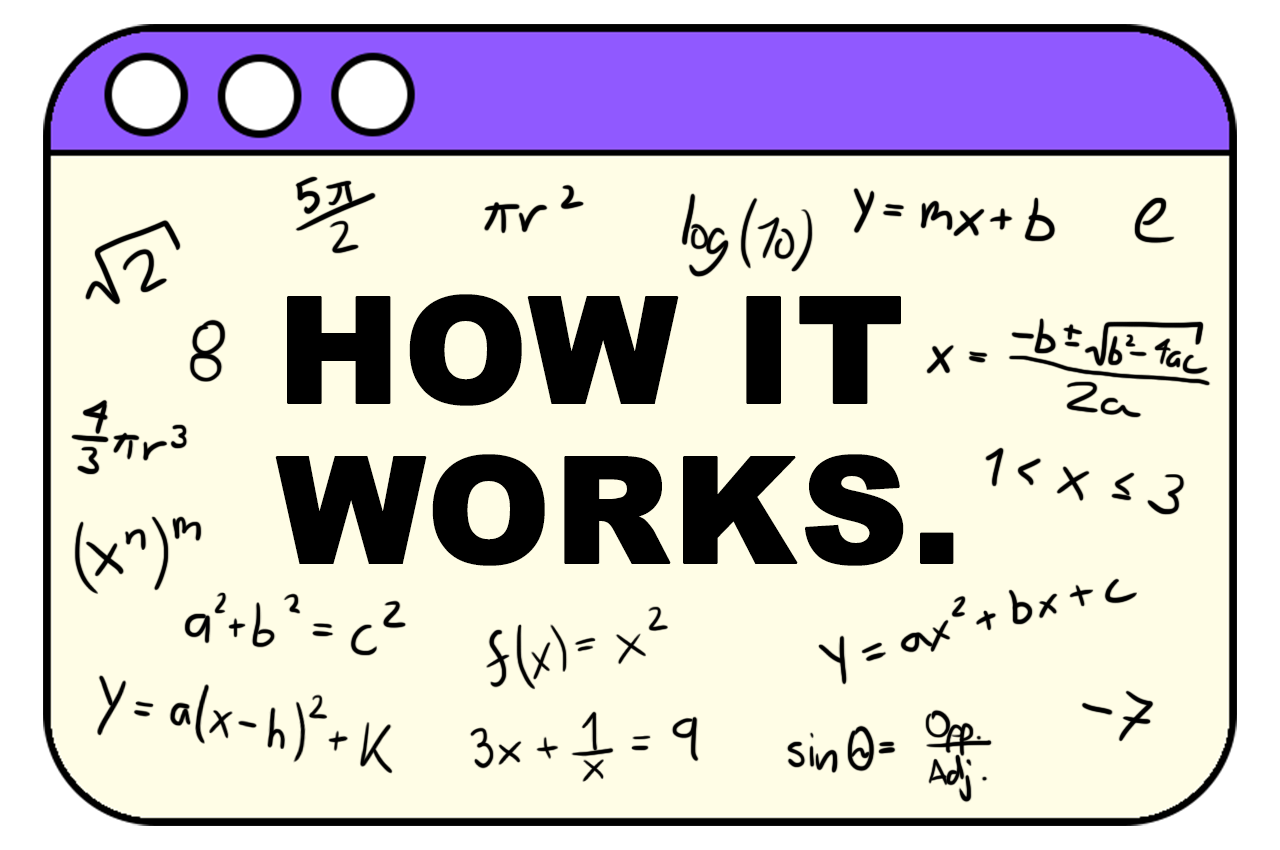 √2
5π/2
πr²
log(10)
y = mx + b
e
8
HOW IT
WORKS.
x = (-b ± √(b² - 4ac))/2a
4/3 πr³
1 < x ≤ 3
(xⁿ)ᵐ
a² + b² = c²
f(x) = x²
y = ax² + bx + c
y = a(x-h)² + K
3x + 1/x = 9
sin θ = Opp./Adj.
-7